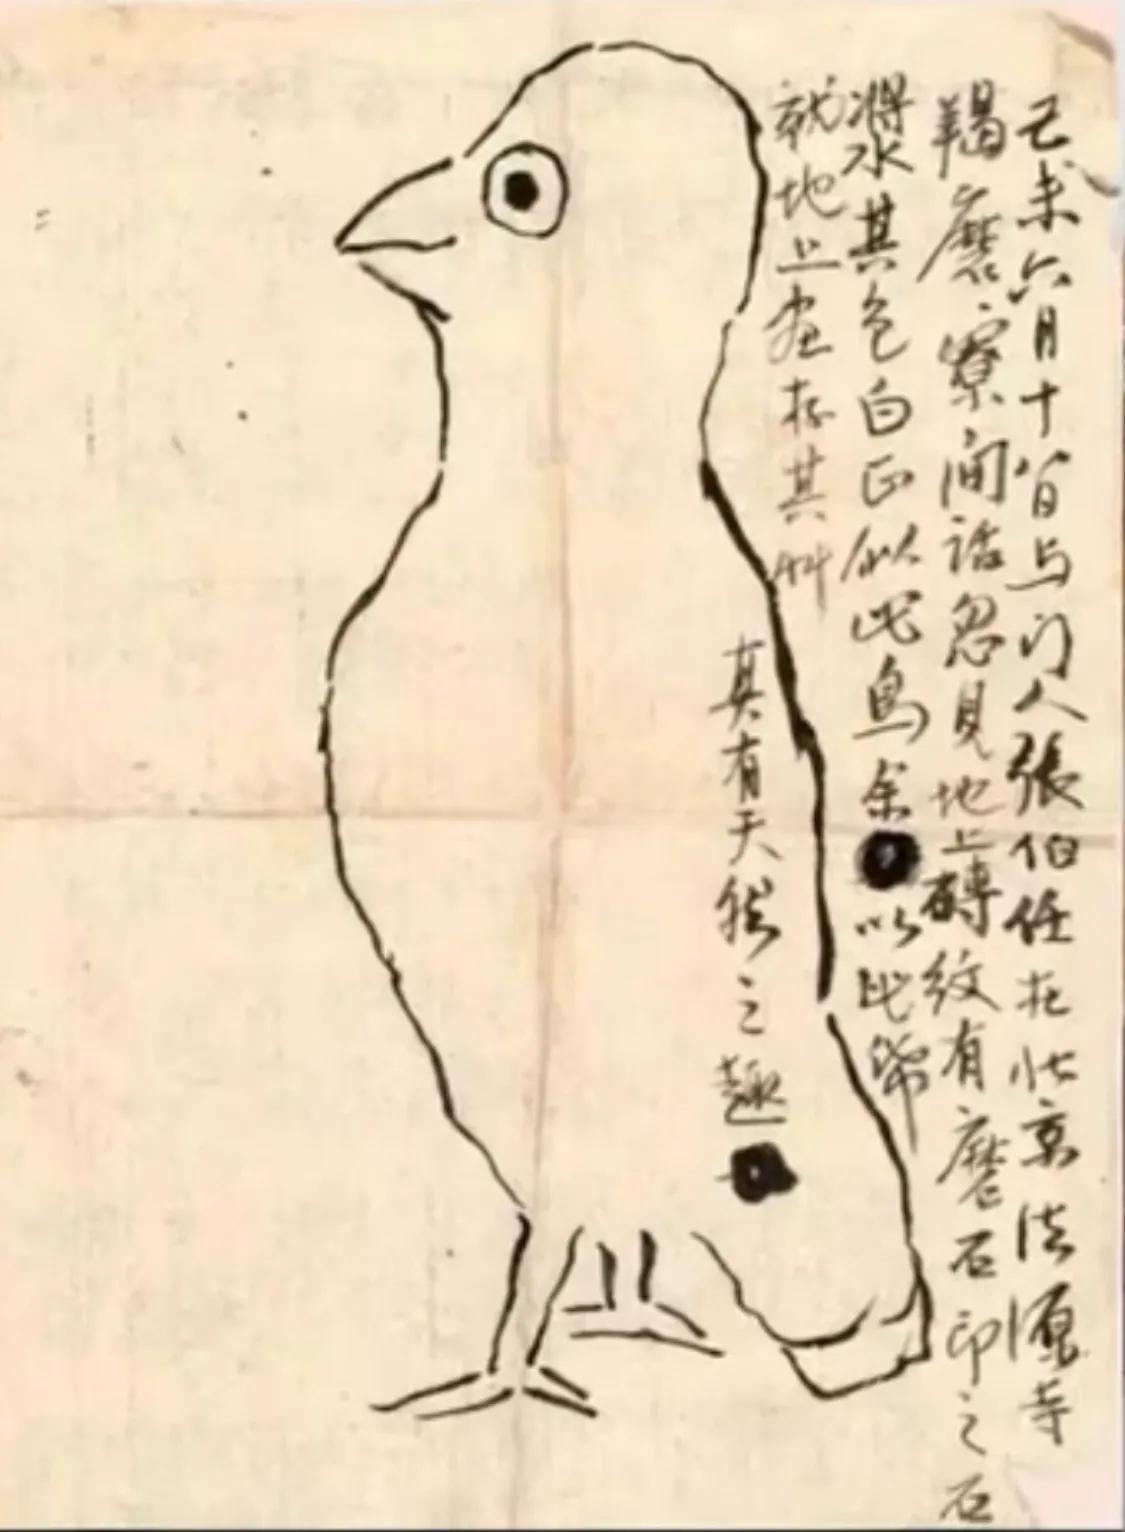 己未六月十八日与门人張伯任在北京法源寺
羯磨寮間話忽見地上磚紋有磨石印之石
漿水其色白正似此鳥余以此帋
就地上画存其艸
真有天然之趣